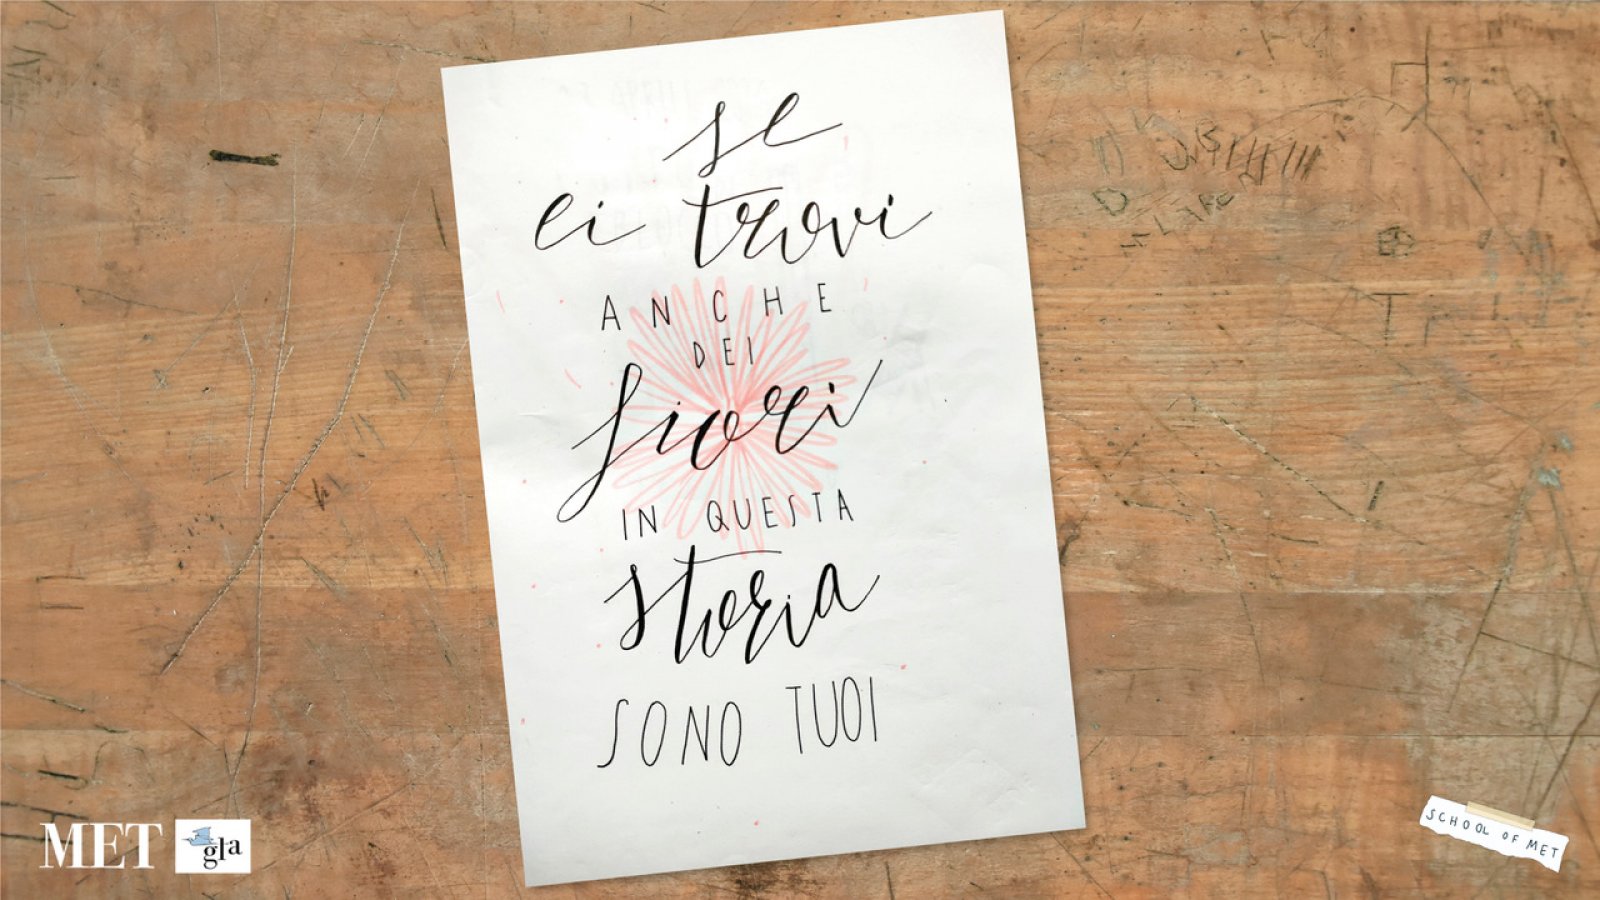 se
ci trovi
ANCHE
DEI
fiori
IN QUESTA
storia
SONO TUOI
MET
gla
SCHOOL OF MET